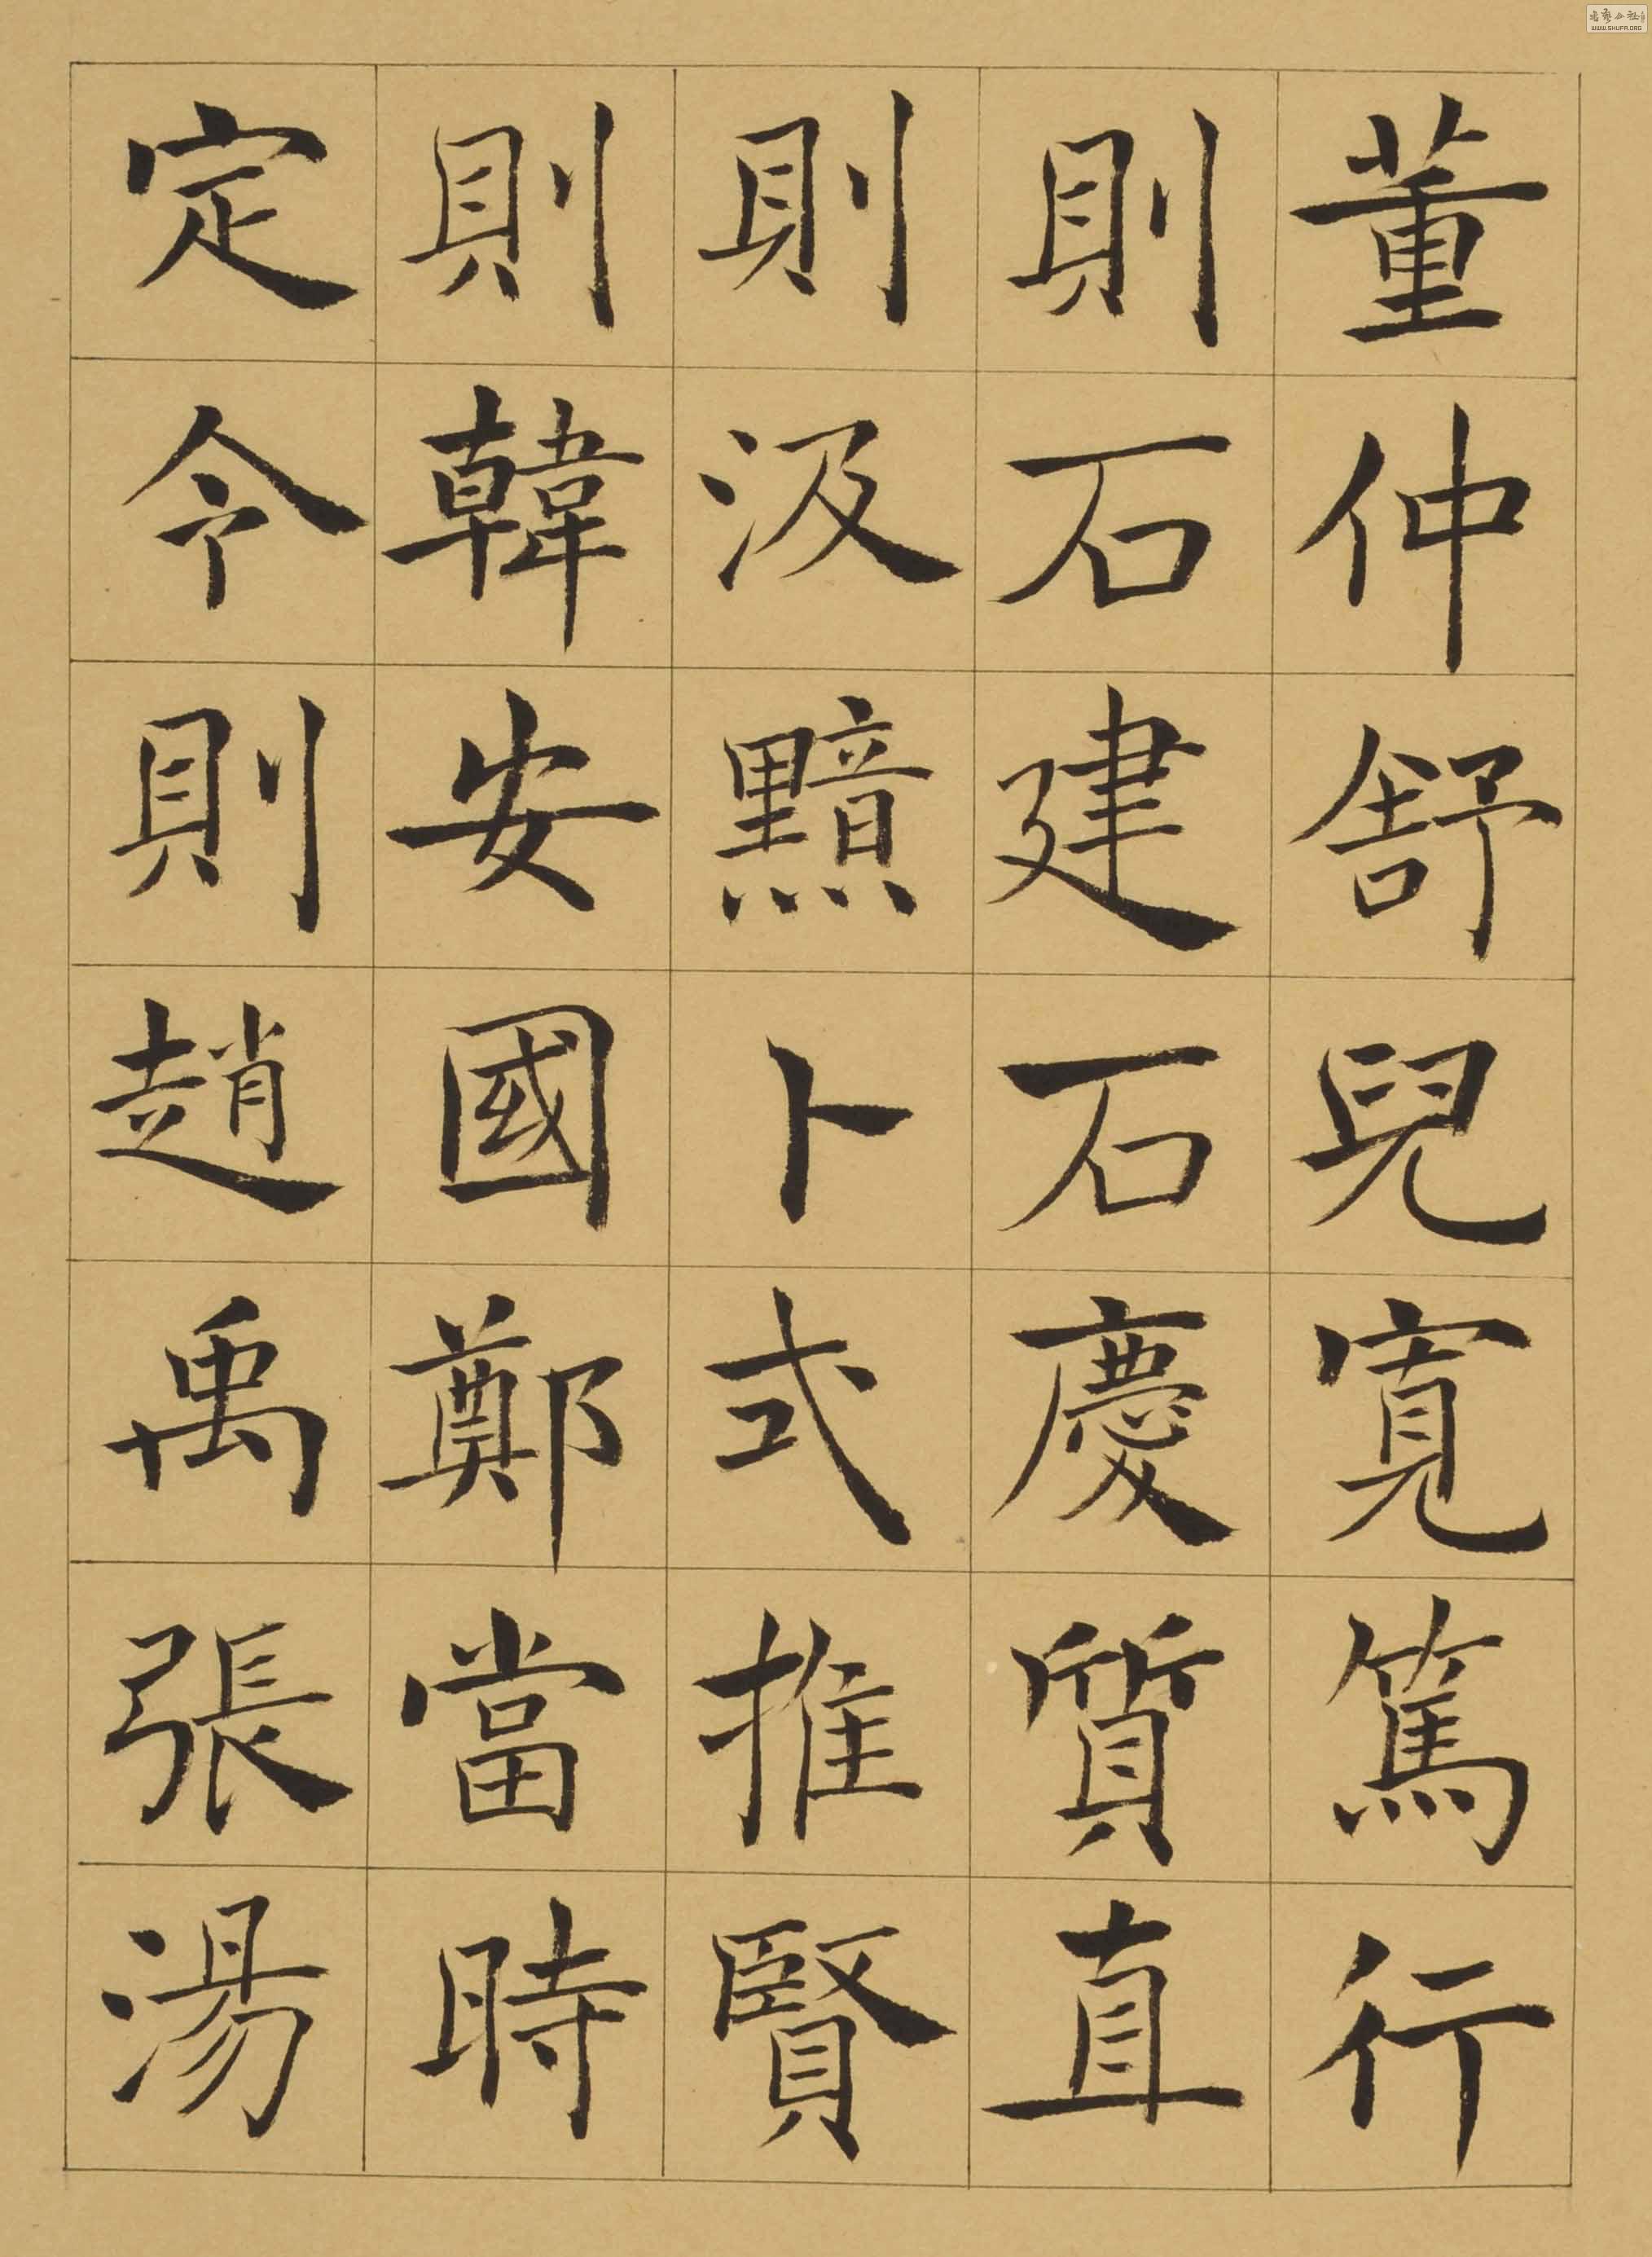 董仲舒兒寬篤行
則石建石慶質直
則汲黯卜式推賢
則韓安國鄭當時
定令則趙禹張湯
WWW.SHUFA.ORG